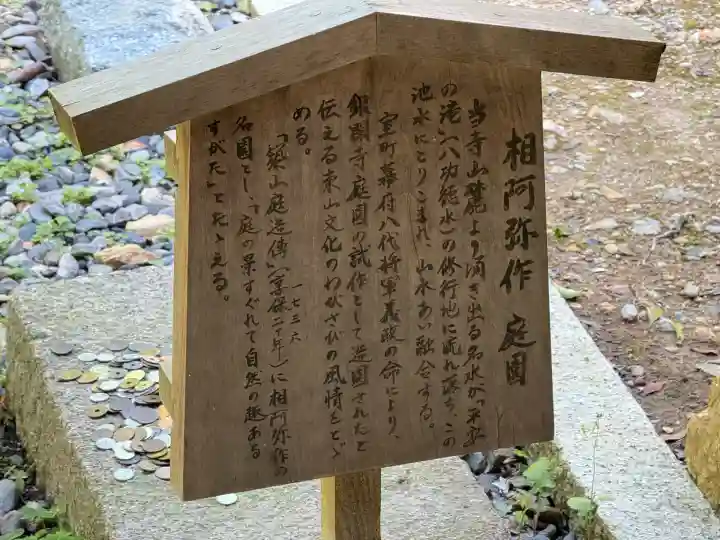 相阿弥作 庭園
当寺山麓より涌き出る名水が「平安
の滝」(八功徳水)の修行地に流れ落ち、この
池水にとりこまれ、山水あい融合する。
室町幕府八代将軍義政の命により、
銀閣寺庭園の試作として造園されたと
伝える東山文化のわびさびの風情をとゞ
める。
一七三六
「築山庭造傳」(享保二十年)に相阿弥作の
名園とし、「庭の景すぐれて自然の趣ある
すがた」とたゝえる。